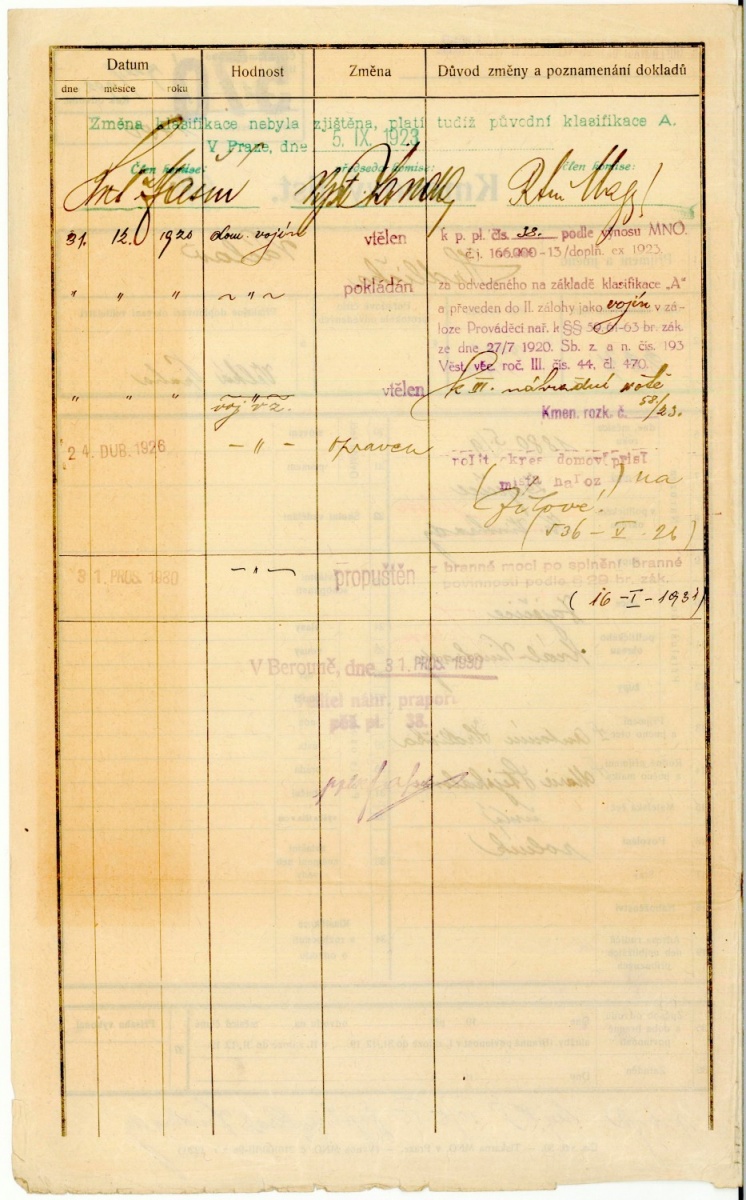 Datum
Hodnost
Změna
Důvod změny a poznamenání dokladů
dne
měsíce
roku
Změna klasifikace nebyla zjištěna, platí tudíž původní klasifikace A.
V Praze, dne 5. IX. 1923
Člen komise:
předseda komise:
člen komise:
31. 12. 1920 dom. vojín vtělen k p. pl. čís. 38. podle výnosu MNO.
č. j. 166.000-13/doplň. ex 1923.
" " " ~ " ~ pokládán za odvedeného na základě klasifikace „A"
a převeden do II. zálohy jako vojín v zá-
loze Prováděcí nař. k §§ 61-63 br. zák.
ze dne 27/7 1920. Sb. z. a n. čís. 193
Věst. věc. roč. III. čís. 44, čl. 470.
" " " ~ " ~ vtělen k III. náhradní rotě
voj. v z.
Kmen. rozk. č. 58/23.
24. DUB. 1926 - " - opraven
( místa naroz ) na
Jílové!
(536 - V - 26)
31. PROS. 1930 - " - propuštěn z branné moci po splnění branné
povinnosti podle § br. zák.
(16 - I - 1931)
V Berouně, dne 31. PROS. 1930
Velitel náhr. praporu
pěš. pl. 38.